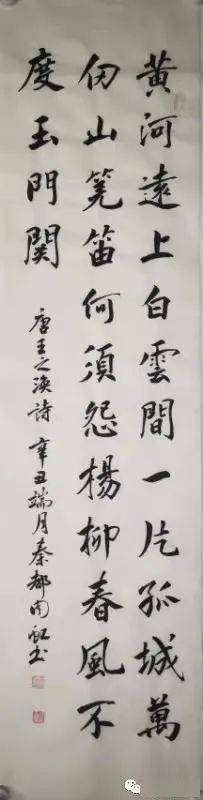 黄河遠上白雲間一片孤城萬
仞山羌笛何須怨楊柳春風不
度玉門関
唐王之涣詩 辛丑端月秦都周书